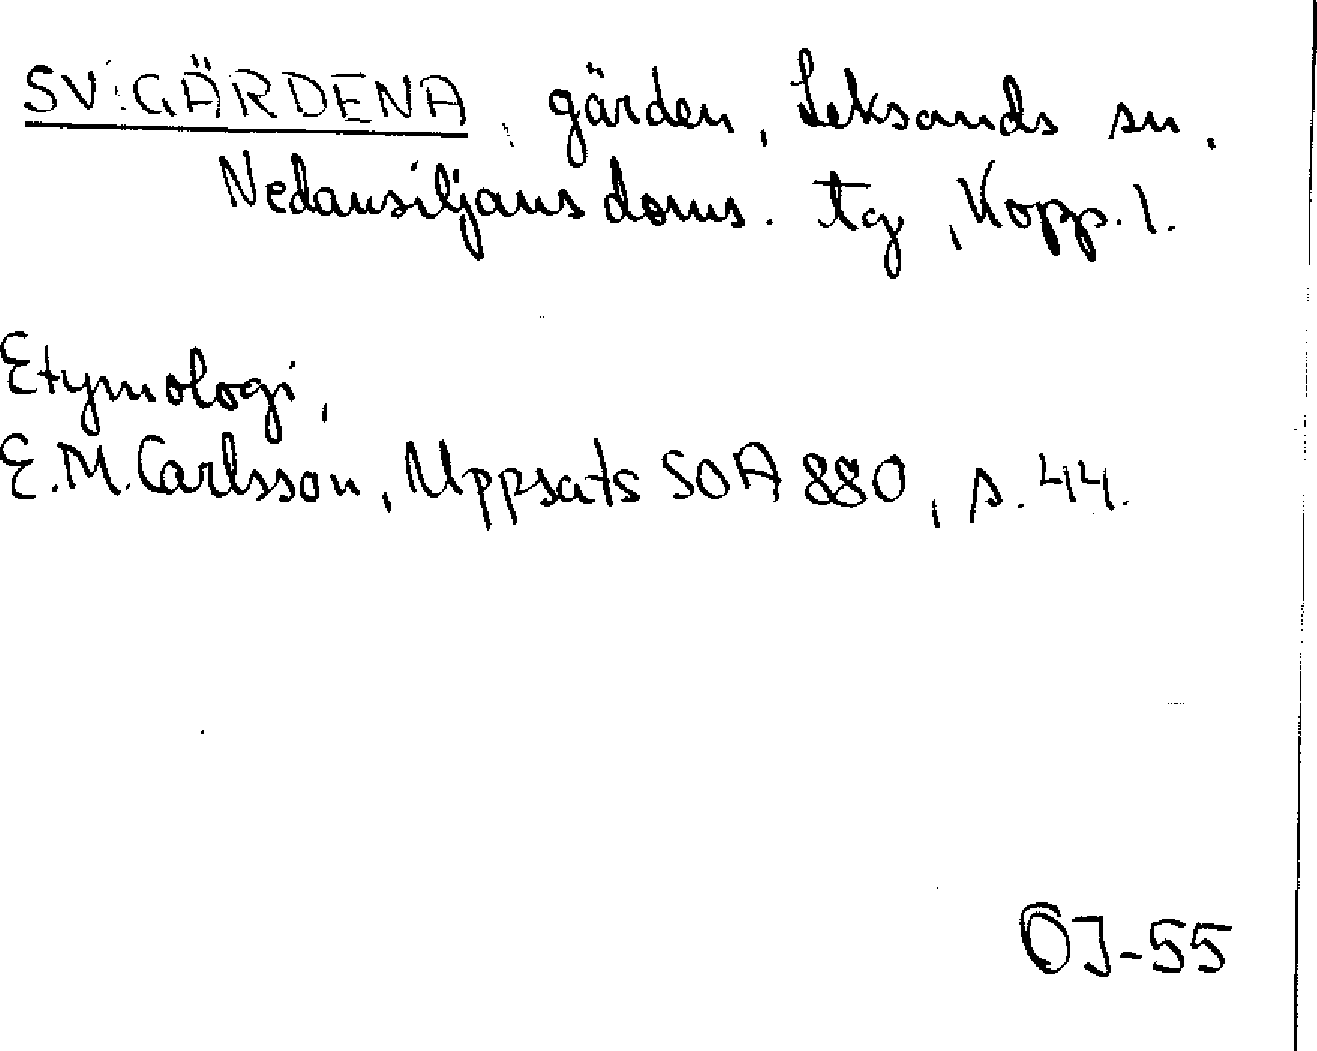 SV.GÄRDENA, gärden, Leksands sn.
Nedansiljans doms. tg, Kopp. l.
Etymologi,
E.M. Carlsson, Uppsats SOA 880, s. 44.
OJ-55